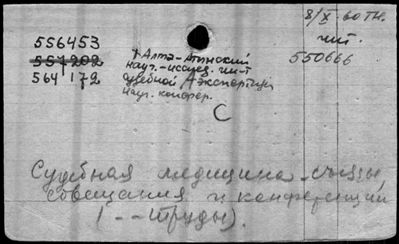 8/X-60 тн.
чит.
556453
551202
564172
1 Алма-Атинский
науч.-исслед. ин-т
судебной экспертизы
науч. конфер.
550666
С
Судебная медицина-съезды,
совещания и конференции
(--труды).